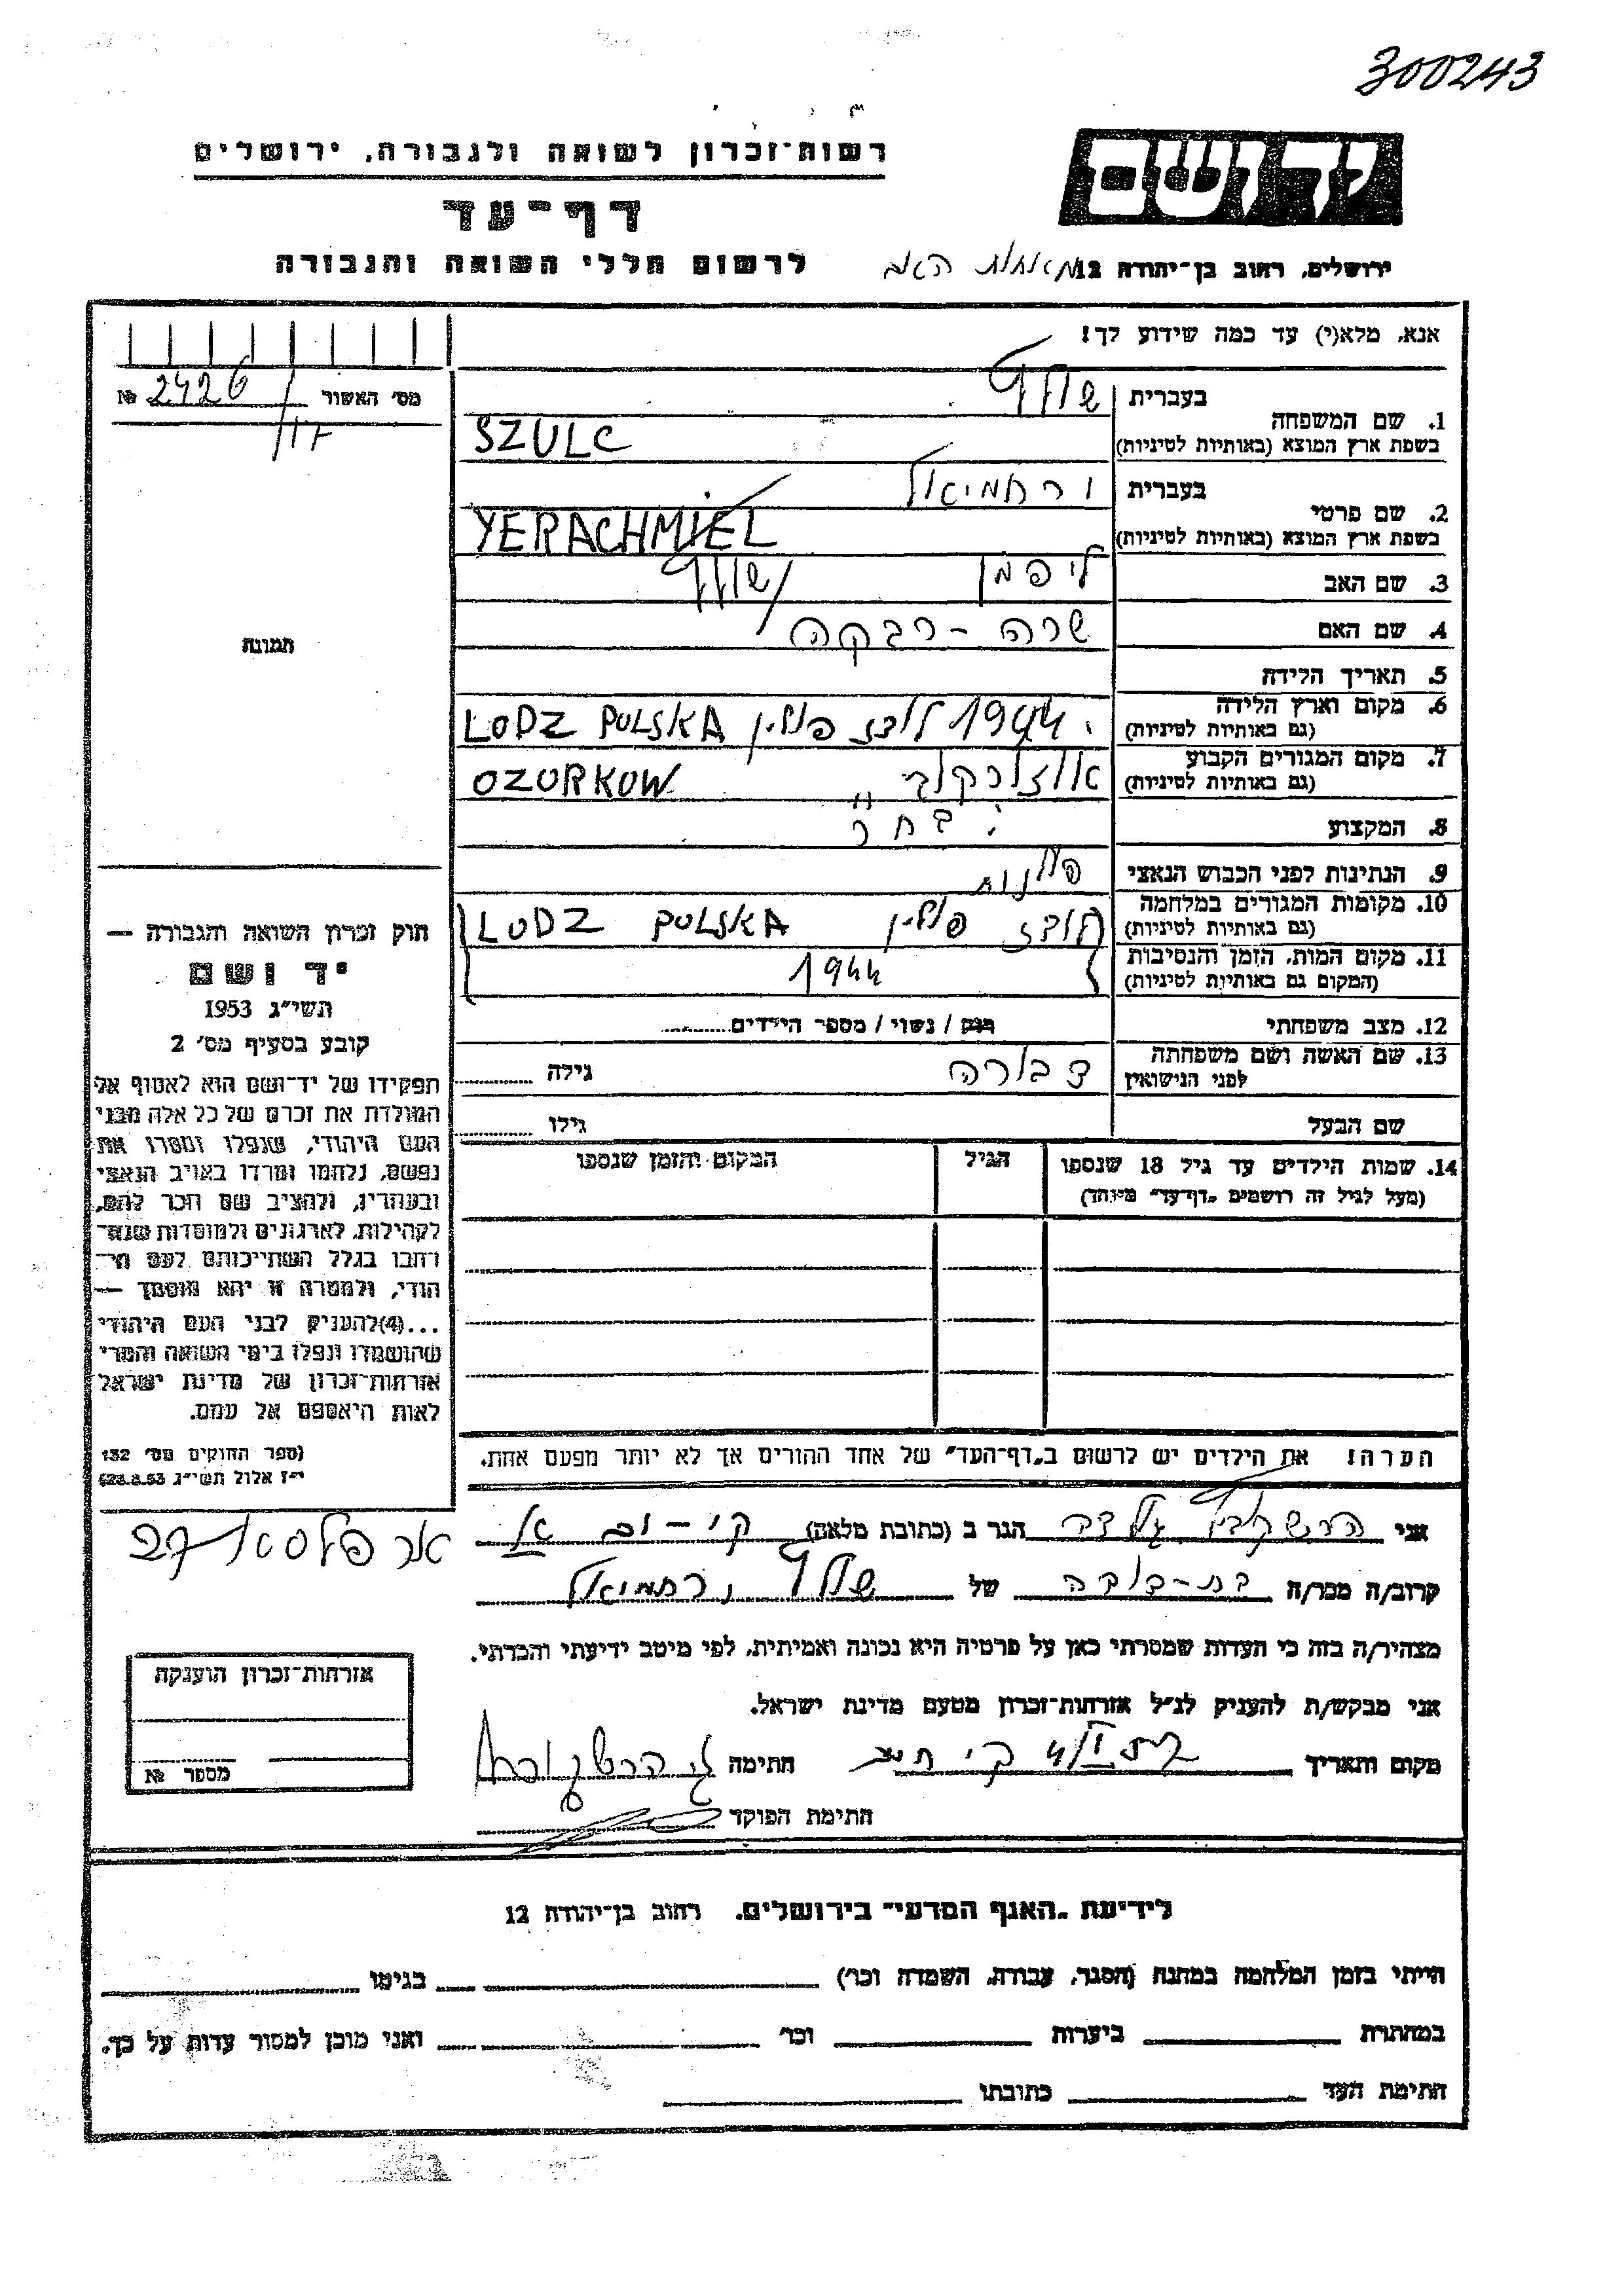 300243
רשות-זכרון לשואה ולגבורה, ירושלים
יד ושם
דף-עד
לרשום חללי השואה והגבורה
ירושלים, רחוב בן-יהודה 12
אנא, מלא(י) עד כמה שידוע לך!
מס' האשור 2426 №
17
1. שם המשפחה
בעברית שולץ
בשפת ארץ המוצא (באותיות לטיניות) SZULC
2. שם פרטי
בעברית ירחמיאל
בשפת ארץ המוצא (באותיות לטיניות) YERACHMIEL
3. שם האב ליפמן שולץ
4. שם האם שרה - רבקה
5. תאריך הלידה
6. מקום וארץ הלידה
(גם באותיות לטיניות) 1944 לודז פולין LODZ POLSKA
7. מקום המגורים הקבוע
(גם באותיות לטיניות) אוזורקוב OZORKOW
8. המקצוע
9. הנתינות לפני הכבוש הנאצי פולנית
10. מקומות המגורים במלחמה
(גם באותיות לטיניות) לודז פולין LODZ POLSKA
11. מקום המות, הזמן והנסיבות
(המקום גם באותיות לטיניות) 1944
12. מצב משפחתי רווק / נשוי / מספר הילדים
13. שם האשה ושם משפחתה
לפני הנישואין דבורה גילה
שם הבעל גילו
14. שמות הילדים עד גיל 18 שנספו
(מעל לגיל זה רושמים "דף-עד" מיוחד)
הגיל
המקום והזמן שנספו
הערה! את הילדים יש לרשום ב"דף-העד" של אחד ההורים אך לא יותר מפעם אחת.
תמונה
חוק זכרון השואה והגבורה —
יד ושם
תשי"ג 1953
קובע בסעיף מס' 2
תפקידו של יד-ושם הוא לאסוף אל
המולדת את זכרם של כל אלה מבני
העם היהודי, שנפלו ומסרו את
נפשם, נלחמו ומרדו באויב הנאצי
ובעוזריו, ולהציב שם וזכר להם,
לקהילות, לארגונים ולמוסדות שנח-
רבו בגלל השתייכותם לעם הי-
הודי, ולמטרה זו יהא מוסמך —
...(4)להעניק לבני העם היהודי
שהושמדו ונפלו בימי השואה והמרי
אזרחות-זכרון של מדינת ישראל
לאות היאספם אל עמם.
(ספר החוקים מס' 132
י"ז אלול תשי"ג 28.8.53)
אני הרשקוביץ הגר ב (כתובת מלאה) קי-ים א
27
קרוב/ה מכר/ה בת-דודה של שולץ ירחמיאל
מצהיר/ה בזה כי העדות שמסרתי כאן על פרטיה היא נכונה ואמיתית, לפי מיטב ידיעתי והכרתי.
אני מבקש/ת להעניק לנ"ל אזרחות-זכרון מטעם מדינת ישראל.
מקום ותאריך חתימה
חתימת הפוקד
אזרחות-זכרון הוענקה
מספר №
לידיעת "האגף המדעי" בירושלים, רחוב בן-יהודה 12
הייתי בזמן המלחמה במחנה (הסגר, עבודה, השמדה וכו') בגיטו
במחתרת ביערות וכו' ואני מוכן למסור עדות על כך.
חתימת העד כתובתו